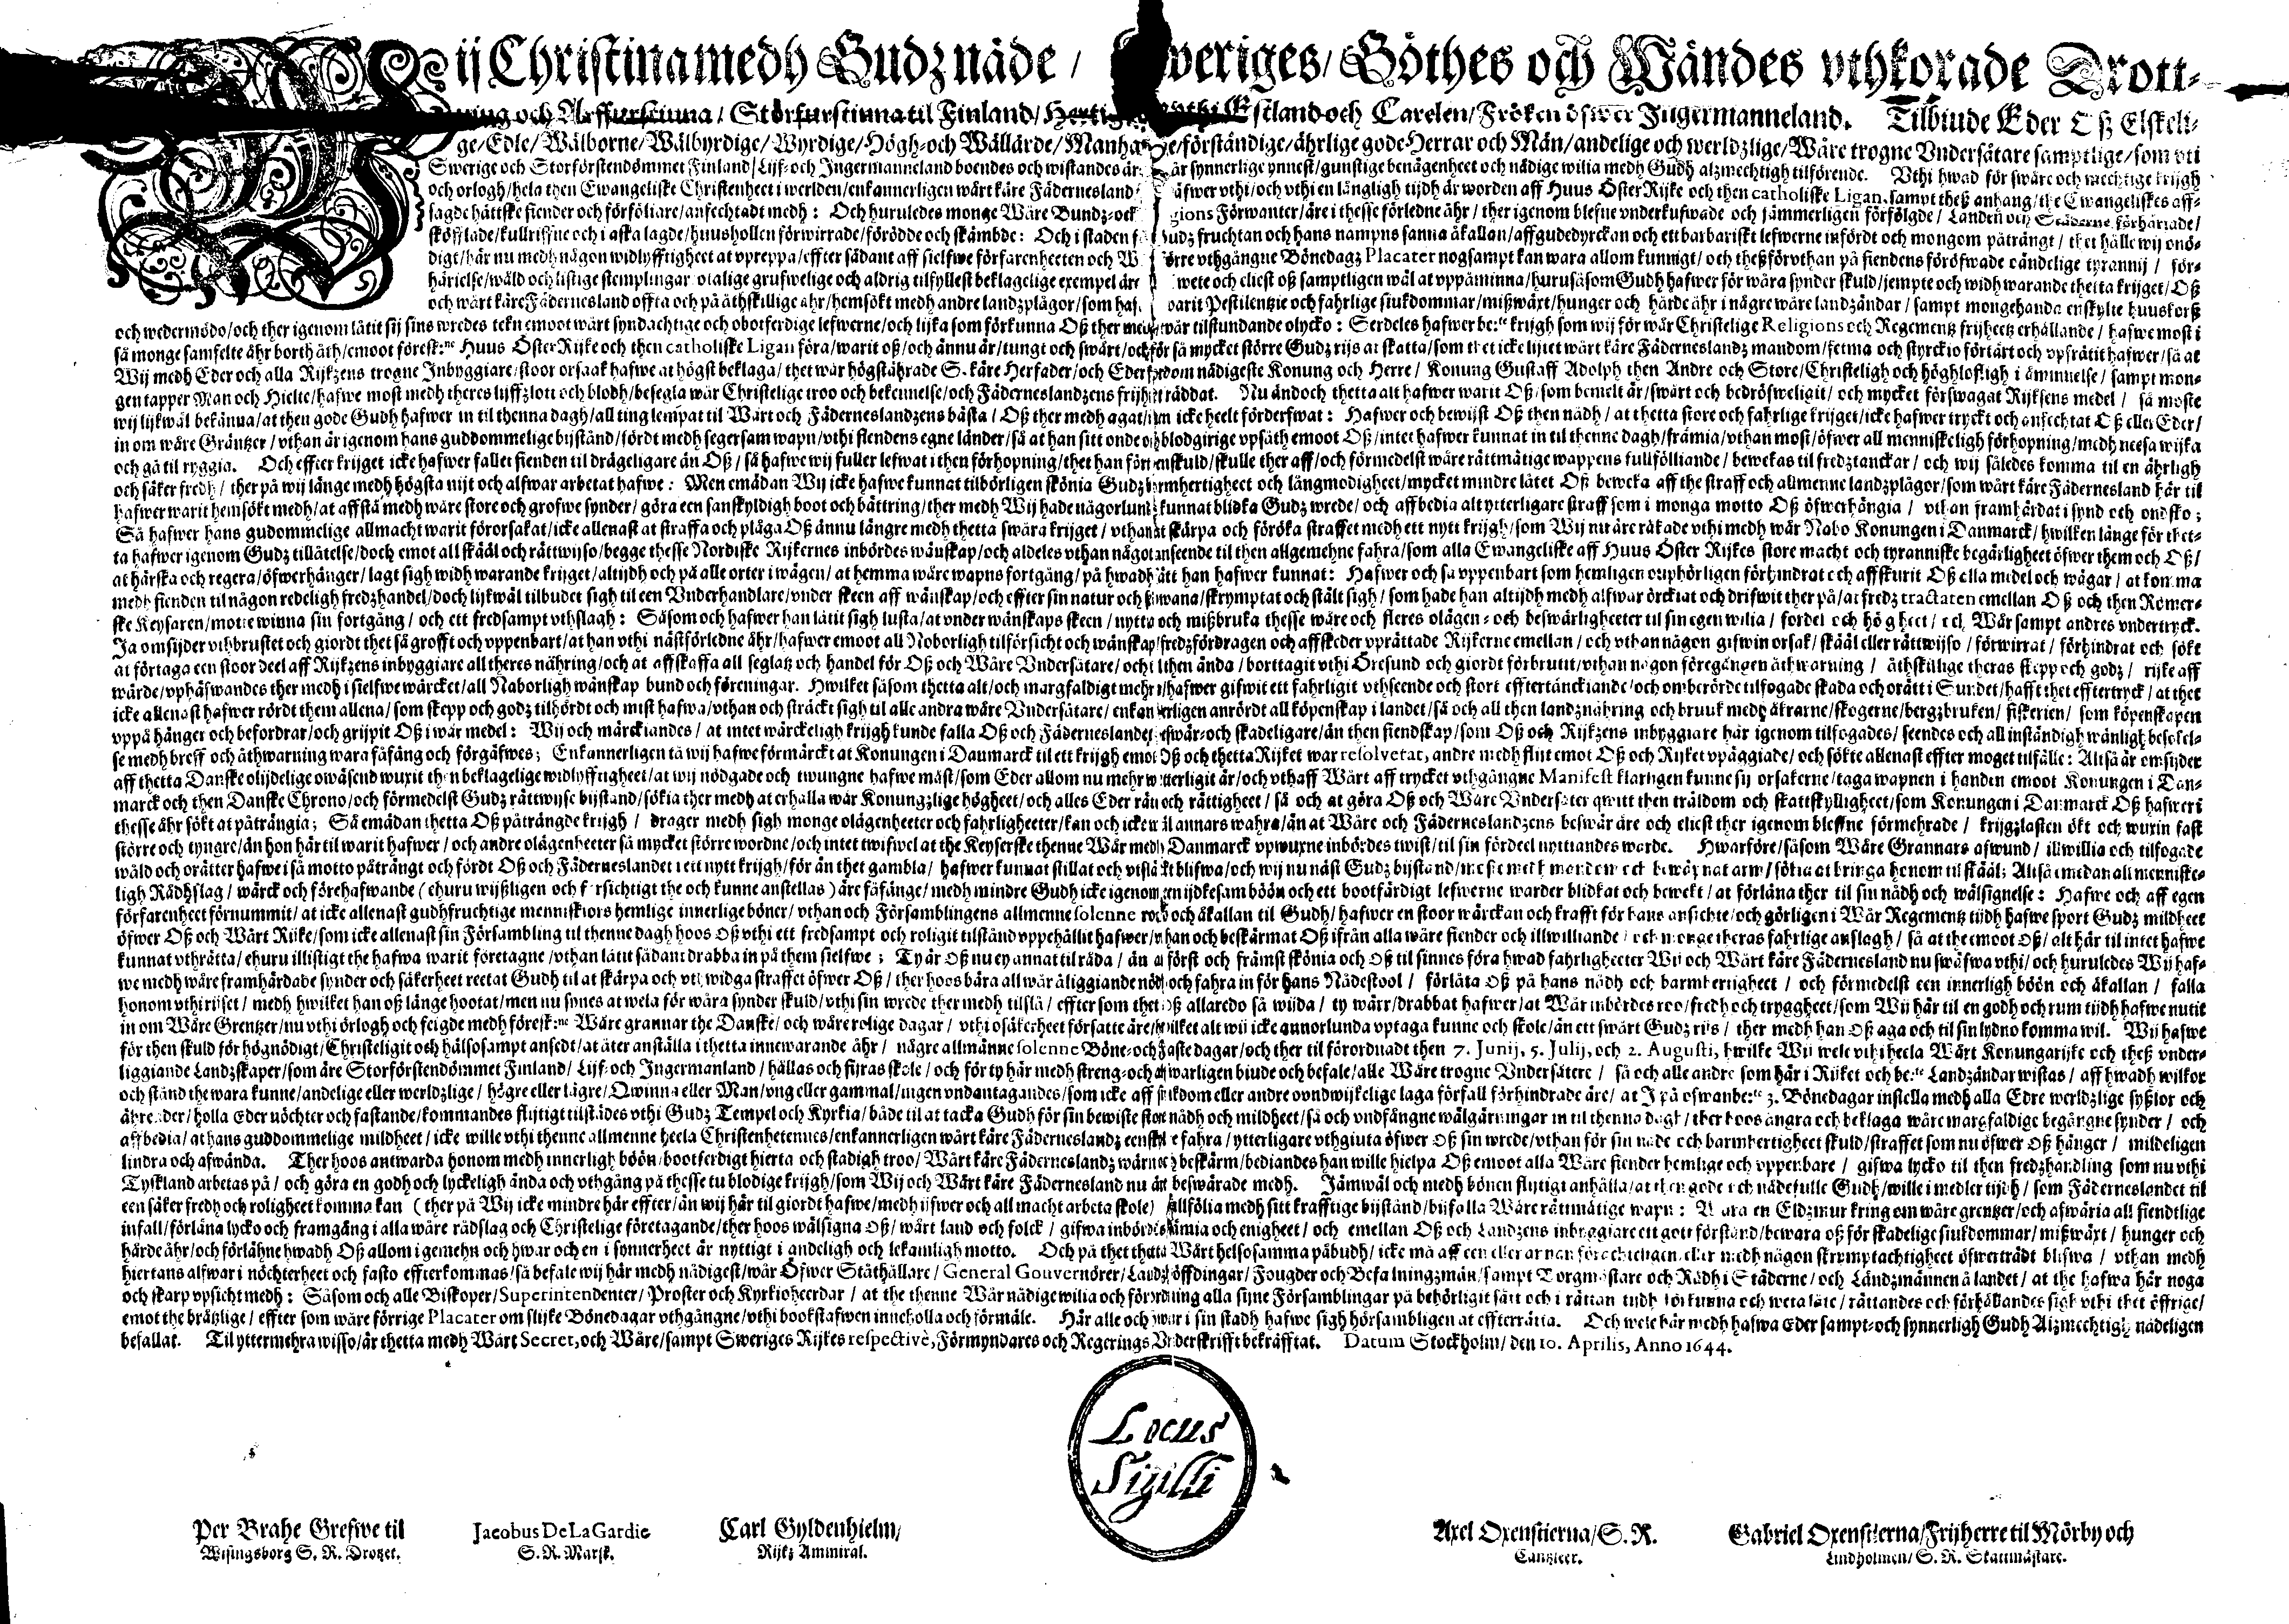 Wij Christina medh Gudz nåde / Sweriges / Göthes och Wändes vthkorade Drott-
ning och Arffurstinna / Störfurstinna til Finland / Estland och Carelen / Fröken öfwer Ingermanneland. Tilbiude Eder Oß Elskeli-
ge / Edle / Wälborne / Wälbyrdige / Wyrdige / Högh- och Wällärde / förståndige / ährlige gode Herrar och Män / andelige och werldzlige / Wåre trogne Vndersåtare samptlige / som vti
Swerige och Storförstendömmet Finland / Lijf- och Ingermanneland boendes och wistandes är: wår synnerlige ynnest / gunstige benägenheet och nådige wilia medh Gudh alzmechtigh tilförende. Vthi hwad för swåre och mechtige krijgh
och orlogh / hela then Ewangeliske Christenheet i werlden / enkannerligen wårt käre Fädernesland / öfwer vthi / och vthi en långligh tijdh är worden aff Huus Öster Rijke och then catholiske Ligan, sampt theß anhang / the Ewangeliskes aff-
sagde hättske fiender och förföliare / anfechtadt medh : Och huruledes monge Wåre Bundz- och gions Förwanter / äre i thesse förledne åhr / ther igenom blefne vnderkufwade och jämmerligen förfölgde / Landen och Städerne förhäriade /
sköfflade / kullriffne och i aska lagde / huushollen förwirrade / förödde och skämbde : Och i staden Gudz fruchtan och hans nampns sanna åkallan / affgudedyrckan och ett barbariskt lefwerne infördt och mongom påträngt / thet hålle wij onö-
digt / här nu medh någon widlyfftigheet at vpreppa / effter sådant aff sielfwe förfarenheeten och förre vthgångne Bönedagz Placater nogsampt kan wara allom kunnigt / och theß förvthan på fiendens föröfwade oändelige tyrannij / för-
härielse / wåld och listige stemplingar otalige grufwelige och aldrig tilfyllest beklagelige exempel äre wete och eliest oß samptligen wäl at vppåminna / hurusåsom Gudh hafwer för wåra synder skuld / jempte och widh warande thetta krijget / Oß
och wårt käre Fädernesland offta och på åthskillige åhr / hemsökt medh andre landzplågor / som haf- warit Pestilentzie och fahrlige siukdommar / mißwäxt / hunger och hårde åhr i någre wåre landzändar / sampt mongehanda enskylte huuskorß
och wedermödo / och ther igenom låtit sij sins wredes tekn emoot wårt syndachtige och obotferdige lefwerne / och lijka som förkunna Oß ther medh wår tilstundande olycko : Serdeles hafwer be:te krijgh som wij för wår Christelige Religions och Regementz frijheetz erhållande / hafwe most i
så monge samfelte åhr borth åth / emoot föresk:ne Huus Öster Rijke och then catholiske Ligan föra / warit oß / och ännu är / tungt och swårt / och för så mycket större Gudz rijs at skatta / som thet icke lijtet wårt käre Fäderneslandz mandom / fetma och styrckio förtärt och vpfrätit hafwer / så at
Wij medh Eder och alla Rijkzens trogne Inbyggiare / stoor orsaak hafwe at högst beklaga / thet wår högstährade S. käre Herfader / och Eder fordom nådigeste Konung och Herre / Konung Gustaff Adolph then Andre och Store / Christeligh och höghloffligh i åminnelse / sampt mon-
gen tapper Man och Hielte / hafwe most medh theres lijffzlott och blodh / besegla wår Christelige troo och bekennelse / och Fäderneslandzens frijheet räddat. Nu ändoch thetta alt hafwer warit Oß / som bemelt är / swårt och bedröfweligit / och mycket förswagat Rijksens medel / så moste
wij lijkwäl bekänna / at then gode Gudh hafwer in til thenna dagh / all ting lempat til Wårt och Fäderneslandzens bästa / Oß ther medh agat / men icke heelt förderfwat : Hafwer och bewijst Oß then nådh / at thetta store och fahrlige krijget / icke hafwer tryckt och anfechtat Oß eller Eder /
in om wåre Gräntzer / vthan är igenom hans guddommelige bijstånd / fördt medh segersam wapn / vthi fiendens egne länder / så at han sitt onde och blodgirige vpsåth emoot Oß / intet hafwer kunnat in til thenne dagh / främia / vthan most / öfwer all menniskeligh förhopning / medh neesa wijka
och gå til ryggia. Och effter krijget icke hafwer fallet fienden til drägeligare än Oß / så hafwe wij fuller lefwat i then förhopning / thet han för thenskuld / skulle ther aff / och förmedelst wåre rättmätige wappens fullfölliande / bewekas til fredztanckar / och wij således komma til en ährligh
och säker fredh / ther på wij länge medh högsta nijt och alfwar arbetat hafwe : Men emädan Wij icke hafwe kunnat tilbörligen skönia Gudz barmhertigheet och långmodigheet / mycket mindre låtet Oß beweka aff the straff och allmenne landzplågor / som wårt käre Fädernesland här til
hafwer warit hemsökt medh / at affstå medh wåre store och grofwe synder / göra een sanskyldigh boot och bättring / ther medh Wij hade någorlunda kunnat blidka Gudz wrede / och affbedia alt ytterligare straff som i monga motto Oß öfwerhängia / vthan framhärdat i synd och ondsko ;
Så hafwer hans gudommelige allmacht warit förorsakat / icke allenast at straffa och plåga Oß ännu längre medh thetta swåra krijget / vthan at skärpa och föröka straffet medh ett nytt krijgh / som Wij nu äre råkade vthi medh wår Nabo Konungen i Danmarck / hwilken länge för thet-
ta hafwer igenom Gudz tillåtelse / doch emot all skääl och rättwijso / begge thesse Nordiske Rijkernes inbördes wänskap / och aldeles vthan något anseende til then allgemehne fahra / som alla Ewangeliske aff Huus Öster Rijkes store macht och tyranniske begärligheet öfwer them och Oß /
at härska och regera / öfwerhänger / lagt sigh widh warande krijget / altijdh och på alle orter i wägen / at hemma wåre wapns fortgång / på hwadh sätt han hafwer kunnat : Hafwer och så vppenbart som hemligen ouphörligen förhindrat och affskurit Oß alla medel och wägar / at komma
medh fienden til någon redeligh fredzhandel / doch lijkwäl tilbudet sigh til een Vnderhandlare / vnder skeen aff wänskap / och effter sin natur och sedwana / skrymptat och stält sigh / som hade han altijdh medh alfwar örcktat och drifwit ther på / at fredz tractaten emellan Oß och then Römer-
ske Keysaren / motte winna sin fortgång / och ett fredsampt vthslagh : Såsom och hafwer han låtit sigh lusta / at vnder wänskaps skeen / nytta och mißbruka thesse wåre och fleres olägen- och beswärligheeter til sin egen wilia / fordel och högheet / och Wår sampt andres vndertryck.
Ja omsijder vthbrustet och giordt thet så grofft och vppenbart / at han vthi nästförledne åhr / hafwer emoot all Noborligh tilförsicht och wänskap / fredzfördragen och affskeder vprättade Rijkerne emellan / och vthan någon gifwin orsak / skääl eller rättwijso / förwirrat / förhindrat och sökt
at förtaga een stoor deel aff Rijkzens inbyggiare all theres nähring / och at affskaffa all seglatz och handel för Oß och Wåre Vndersåtare / och til then ända / borttagit vthi Öresund och giordt förbrutit / vthan någon föregången åthwarning / åthskilige theras skepp och godz / rijke aff
wärde / vphäfwandes ther medh i sielfwe wärcket / all Naborligh wänskap bund och föreningar. Hwilket såsom thetta alt / och margfaldigt mehr / hafwer gifwit ett fahrligit vthseende och stort effterränckiande / och omberörde tilfogade skada och orätt i Sundet / hafft thet effterttryck / at thet
icke allenast hafwer rördt them allena / som skepp och godz tilhördt och mist hafwa / vthan och sträckt sigh til alle andra wåre Vndersåtare / enkannerligen anrördt all köpenskap i landet / så och all then landznähring och bruuk medh åkrarne / skogerne / bergzbruken / fiskerien / som köpenskapen
vppå hänger och befordrar / och grijpit Oß i wår medel : Wij och märckiandes / at intet wärckeligh krijgh kunde falla Oß och Fäderneslandet swår- och skadeligare / än then fiendskap / som Oß och Rijkzens inbyggiare här igenom tilfogades / seendes och all inständigh wänligh besökel-
se medh breff och åthwarning wara fåfäng och förgäfwes ; Enkannerligen tå wij hafwe förmärckt at Konungen i Danmarck til ett krijgh emot Oß och thetta Rijket war resolvetat, andre medh flint emot Oß och Rijket vpäggiade / och sökte allenast effter moget tilfälle : Altså är omsijder
aff thetta Danske olijdelige owäsend wurit then beklagelige widlyfftigheet / at wij nödgade och twungne hafwe måst / som Eder allom nu mehr witterligit är / och vthaff Wårt aff trycket vthgångne Manifest klarligen kunne sij orsakerne / taga wapnen i handen emoot Konungen i Dan-
marck och then Danske Chrono / och förmedelst Gudz rättwijse bijstånd / sökia ther medh at erhålla wår Konungzlige högheet / och alles Eder rätt och rättigheet / så och at göra Oß och Wåre Vndersåter qwitt then träldom och skattskylligheet / som Konungen i Danmarck Oß hafwer i
thesse åhr sökt at påtrångia ; Så emädan thetta Oß påträngde krijgh / drager medh sigh monge olägenheeter och fahrligheeter / kan och icke wäl annars wahra / än at Wåre och Fäderneslandzens beswär äre och eliest ther igenom bleffne förmehrade / krijgzlasten ökt och wurin fast
större och tyngre / än hon här til warit hafwer / och andre olägenheeter så mycket större wordne / och intet twifwel at the Keyserske thenne Wår medh Danmarck vpwuxne inbördes twist / til sin fördeel nyttiandes warde. Hwarföre / såsom Wåre Grannars afwund / illwillia och tilfogade
wåld och orätter hafwe i så motto påträngt och fördt Oß och Fäderneslandet i ett nytt krijgh / för än thet gambla / hafwer kunnat stillat och vtslä kt blifwa / och wij nu näst Gudz bijstånd / moste medh manden och bewäpnat arm / sökia at bringa honom til skääl ; Altså i medan all menniske-
ligh Rådhslag / wärck och förehafwande ( ehuru wijßligen och försichtigt the och kunne anstellas ) äre fåfänge / medh mindre Gudh icke igenom en ijdkesam böön och ett bootfärdigt lefwerne warder blidkat och bewekt / at förläna ther til sin nådh och wälsignelse : Hafwe och aff egen
förfarenheet förnummit / at icke allenast gudhfruchtige menniskiors hemlige innerlige böner / vthan och Församblingens allmenne solenne rop och åkallan til Gudh / hafwer en stoor wärckan och krafft för hans ansichte / och görligen i Wår Regementz tijdh hafwe sport Gudz mildheet
öfwer Oß och Wårt Rijke / som icke allenast sin Försambling til thenne dagh hoos oß vthi ett fredsampt och roligit tilstånd vppehållit hafwer / vthan och beskärmat Oß ifrån alla wåre fiender och illwilliande / och monge theras fahrlige anslagh / så at the emoot oß / alt här til intet hafwe
kunnat vthrätta / ehuru illistigt the hafwa warit företagne / vthan låtit sådant drabba in på them sielfwe ; Ty är Oß nu ey annat til råda / än at först och främst skönia och Oß til sinnes föra hwad fahrligheeter Wij och Wårt käre Fädernesland nu swäfwa vthi / och huruledes Wij haf-
we medh wåre framhärdade synder och säkerheet reetat Gudh til at skärpa och vthwidga straffet öfwer Oß / ther hoos bära all wår åliggiande nödh och fahra in för hans Nådestool / förlåta Oß på hans nådh och barmhertigheet / och förmedelst een innerligh böön och åkallan / falla
honom vthi rijset / medh hwilket han oß länge hootat / men nu synes at wela för wåra synder skuld / vthi sin wrede ther medh tilslå / effter som thet oß allaredo så wijda / ty wärr / drabbat hafwer / at Wår inbördes roo / fredh och tryggheet / som Wij här til en godh och rum tijdh hafwe nutit
in om Wåre Grentzer / nu vthi örlogh och feigde medh föresk:ne Wåre grannar the Danske / och wåre rolige dagar / vthi osäkerheet försatte äre / hwilket alt wij icke annorlunda vptaga kunne och skole / än ett swårt Gudz rijs / ther medh han Oß aga och til sin lydno komma wil. Wij hafwe
för then skuld för högnödigt / Christeligit och hälsosampt ansedt / at åter anställa i thetta innewarande åhr / någre allmänne solenne Böne- och Fastedagar / och ther til förordnadt then 7. Junij, 5. Julij, och 2. Augusti, hwilke Wij wele vthi heela Wårt Konungarijke och theß vnder-
liggiande Landzskaper / som äre Storförstendömmet Finland / Lijf- och Ingermanland / hållas och fijras skole / och för ty här medh streng- och alfwarligen biude och befale / alle Wåre trogne Vndersåtere / så och alle andre som här i Rijket och be:te Landzändar wistas / aff hwadh wilkor
och stånd the wara kunne / andelige eller werldzlige / högre eller lägre / Qwinna eller Man / vng eller gammal / ingen vndantagandes / som icke aff siukdom eller andre ovndwijkelige laga förfall förhindrade äre / at I på ofwanbe:te 3. Bönedagar instella medh alla Edre werldzlige syßlor och
ährender / holla Eder nöchter och fastande / kommandes flijtigt tilstädes vthi Gudz Tempel och Kyrkia / både til at tacka Gudh för sin bewiste stora nådh och mildheet / så och vndfångne wälgärningar in til thenna dagh / ther hoos ångra och beklaga wåre margfaldige begångne synder / och
affbedia / at hans guddommelige mildheet / icke wille vthi thenne allmenne heela Christenhetennes / enkannerligen wårt käre Fäderneslandz eenskylte fahra / ytterligare vthgiuta öfwer Oß sin wrede / vthan för sin nåde och barmhertigheet skuld / straffet som nu öfwer Oß hänger / mildeligen
lindra och afwända. Ther hoos antwarda honom medh innerligh böön / bootferdigt hierta och stadigh troo / Wårt käre Fäderneslandz wärn och beskärm / bediandes han wille hielpa Oß emoot alla Wåre fiender hemlige och vppenbare / gifwa lycko til then fredzhandling som nu vthi
Tyskland arbetas på / och göra en godh och lyckeligh ända och vthgång på thesse tu blodige krijgh / som Wij och Wårt käre Fädernesland nu är beswärade medh. Jämwäl och medh bönen flijtigt anhålla / at then gode och nådefulle Gudh / wille i medler tijdh / som Fäderneslandet til
een säker fredh och roligheet komma kan ( ther på Wij icke mindre här effter / än wij här til giordt hafwe / medh ijfwer och all macht arbeta skole ) allfölia medh sitt krafftige bijstånd / bijfalla Wåre rättmätige wapn : Wara en Eldzmur kring om wåre grentzer / och afwäria all fiendtlige
infall / förläna lycko och framgång i alla wåre rådslag och Christelige företagande / ther hoos wälsigna Oß / wårt land och folck / gifwa inbördes sämia och enigheet / och emellan Oß och Landzens inbyggiare ett gott förstånd / bewara oß för skadelige siukdommar / mißwäxt / hunger och
hårde åhr / och förlähne hwadh Oß allom i gemehn och hwar och en i synnerheet är nyttigt i andeligh och lekamligh motto. Och på thet thetta Wårt helsosamma påbudh / icke må aff een eller annan föraechteligen, eller medh någon skrymptachtigheet öfwerträdt blifwa / vthan medh
hiertans alfwar i nöchterheet och fasto effterkommas / så befale wij här medh nådigest / wår Öfwer Ståthållare / General Gouvernörer / Landzhöffdingar / Fougder och Befalningzmän / sampt Borgmästare och Rådh i Städerne / och Ländzmännen å landet / at the hafwa här noga
och skarp vpsicht medh : Såsom och alle Biskoper / Superintendenter / Proster och Kyrkioheerdar / at the thenne Wår nådige wilia och förordning alla sijne Församblingar på behörligit sätt och i rättan tijdh förkunna och weta låte / rättandes och förhållandes sigh vthi thet öffrige /
emot the bråtzlige / effter som wåre förrige Placater om slijke Bönedagar vthgångne / vthi bookstafwen innehålla och förmäle. Här alle och hwar i sin stadh hafwe sigh hörsambligen at effterrätta. Och wele här medh hafwa Eder sampt- och synnerligh Gudh Alzmechtigh nådeligen
befallat. Til yttermehra wisso / är thetta medh Wårt Secret, och Wåre / sampt Sweriges Rijkes respectivè, Förmyndares och Regerings Vnderskrifft bekräfftat. Datum Stockholm / den 10. Aprilis, Anno 1644.
Locus
Sigilli
Per Brahe Grefwe til
Wisingsborg S. R. Drotzet.
Jacobus De La Gardie
S. R. Marsk.
Carl Gyldenhielm /
Rijkz Ammiral.
Axel Oxenstierna / S. R.
Cantzleer.
Gabriel Oxenstierna / Frijherre til Mörby och
Lindholmen / S. R. Skattmästare.